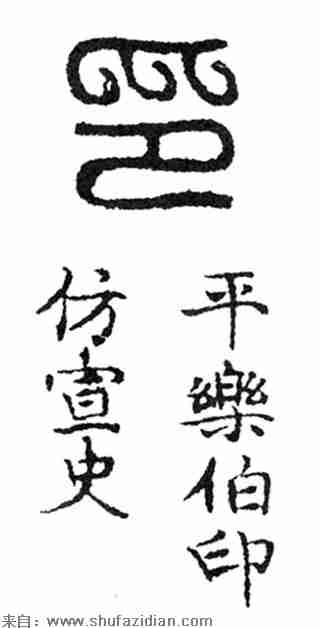 印
平樂伯印
仿宣史
来自：www.shufazidian.com